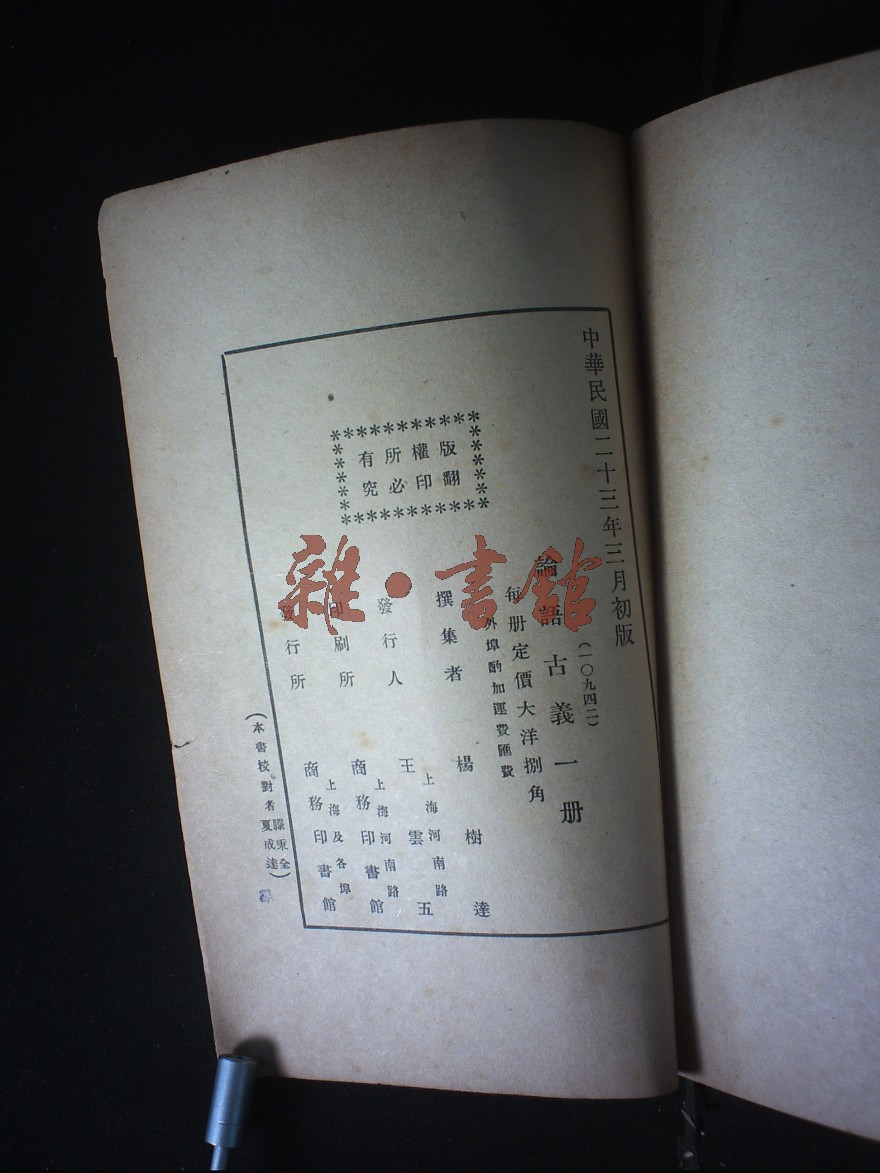 中華民國二十三年三月初版
(一〇九四二)
論語古義一册
每册定價大洋捌角
外埠酌加運費匯費
版權所有
翻印必究
撰集者 楊樹達
發行人 王雲五
上海河南路
印刷所 商務印書館
上海河南路
發行所 商務印書館
上海及各埠
(本書校對者
秉全
夏成達)
雜·書館